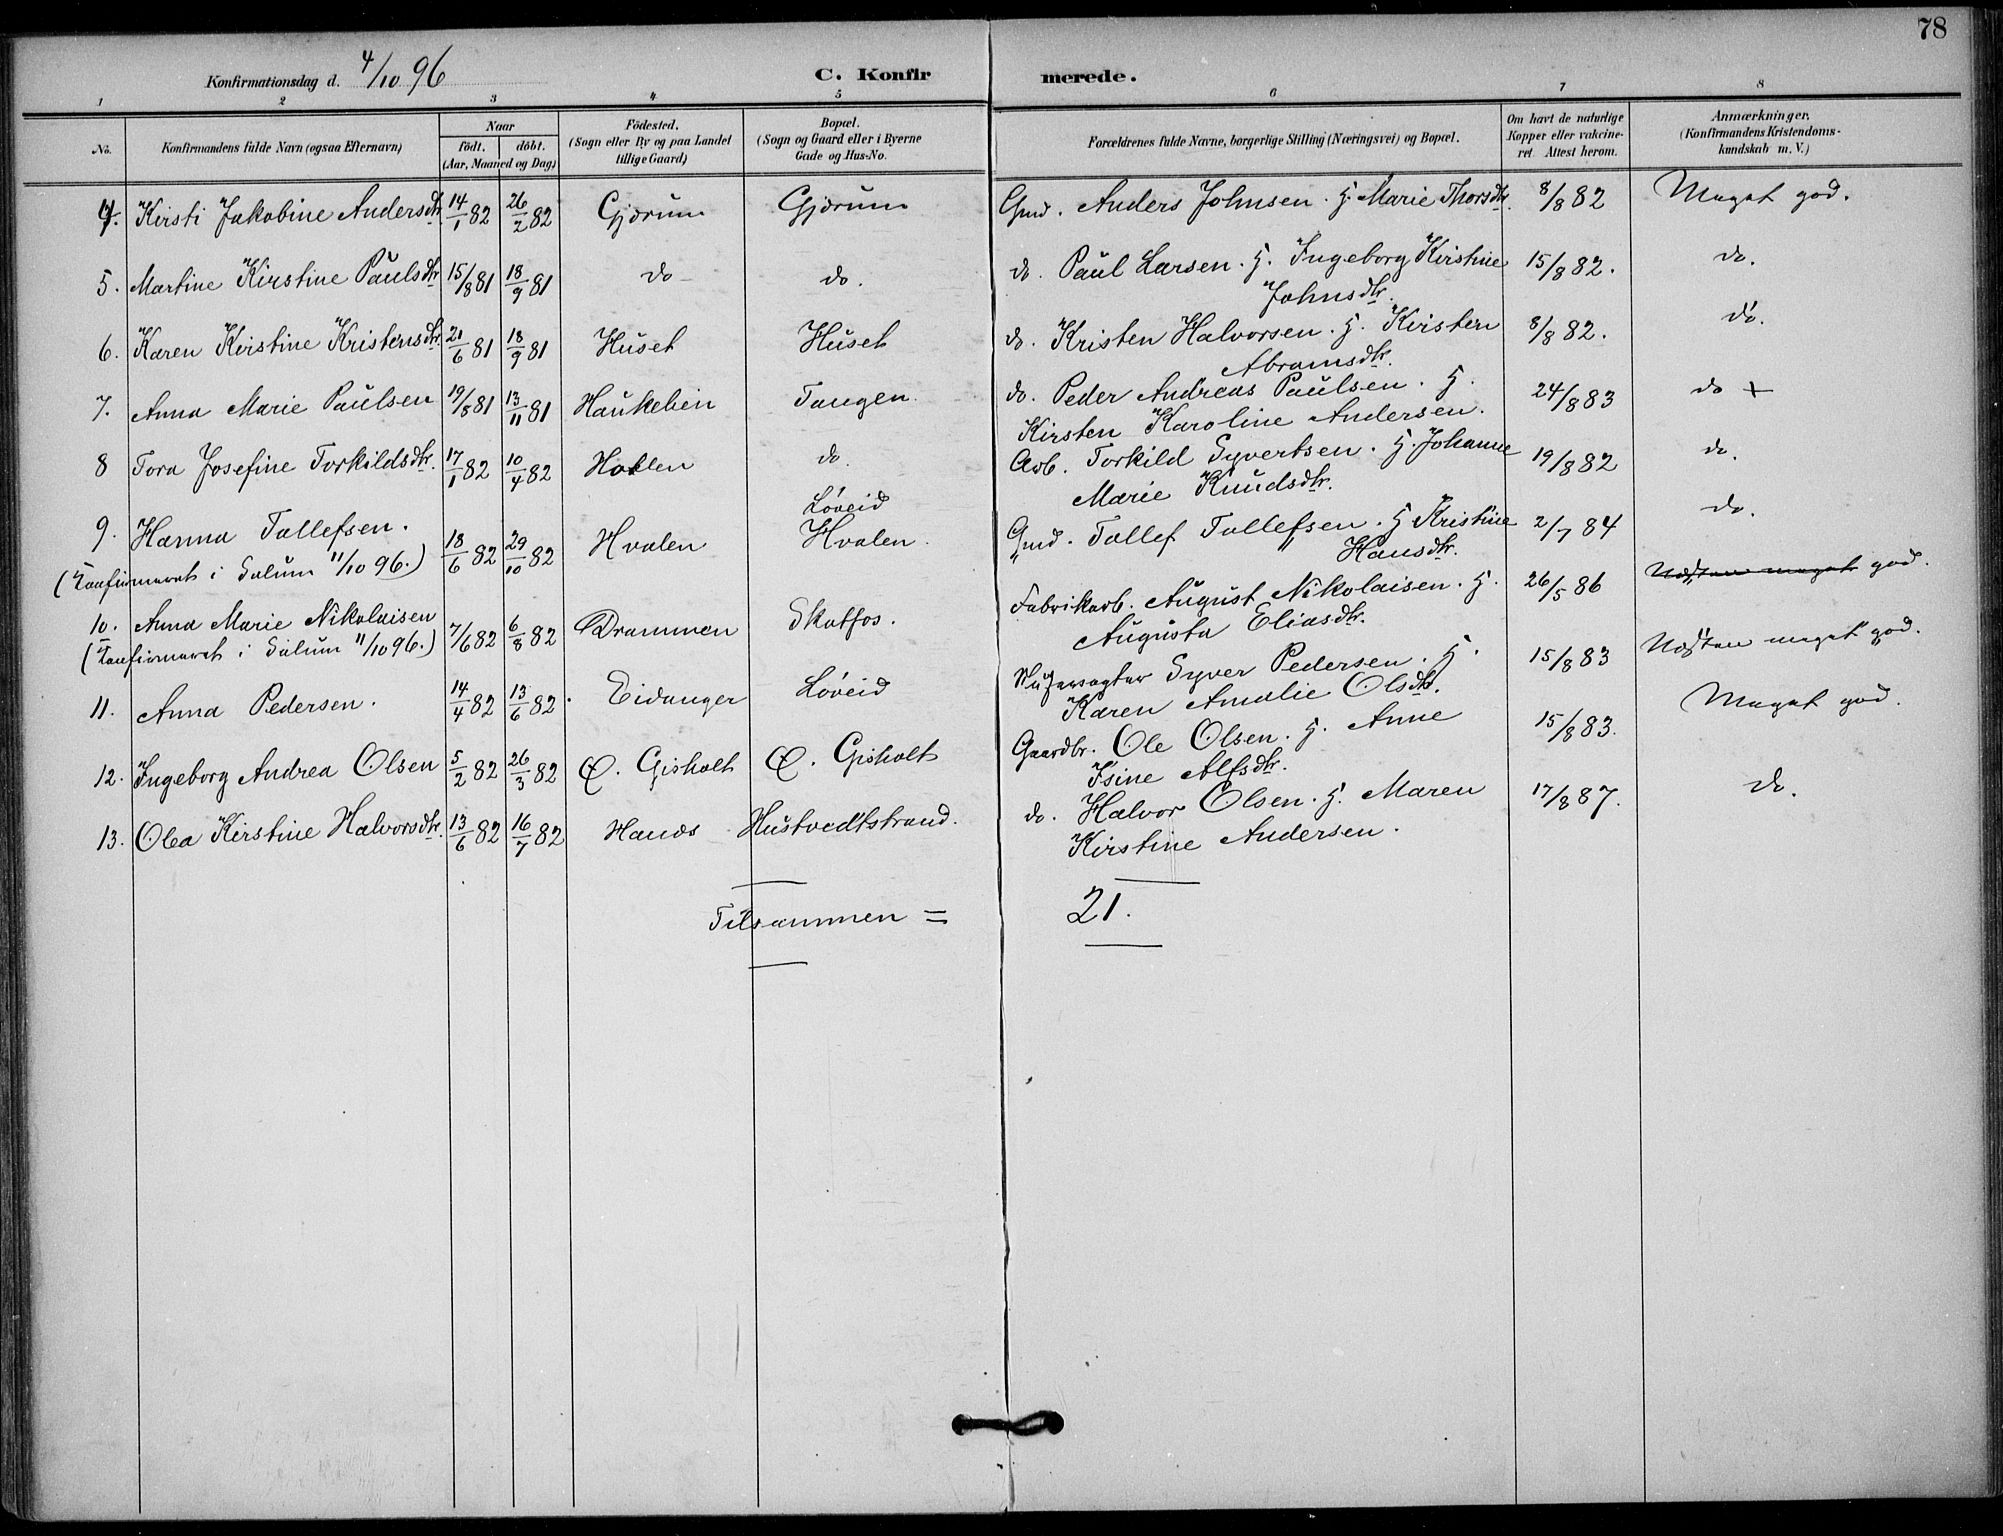 78
Konfirmationsdag d. 4/10 96
C. Konfirmerede.
1 2 3 4 5 6 7 8
No.
Konfirmandens fulde Navn (ogsaa Efternavn)
Naar
födt. döbt.
(Aar, Maaned og Dag)
Födested.
(Sogn eller By og paa Landet
tillige Gaard)
Bopæl.
(Sogn og Gaard eller i Byerne
Gade og Hus-No.
Forældrenes fulde Navne, borgerlige Stilling (Næringsvei) og Bopæl.
Om havt de naturlige
Kopper eller vakcine-
ret. Attest herom.
Anmærkninger.
(Konfirmandens Kristendoms-
kundskab m. V.)
4. Kirsti Jakobine Andersdtr. 14/1 82 26/2 82 Gjærum Gjærum Gmd. Anders Johnsen. H. Marie Thorsdtr. 8/8 82 Meget god.
5. Martine Kirstine Paulsdtr 15/8 81 18/9 81 do do. do. Paul Larsen. H. Ingeborg Kirstine 15/8 82. do.
Johnsdtr.
6. Karen Kirstine Kristensdtr. 21/6 81 18/9 81 Huset Huset do. Kristen Halvorsen. H. Kirsten 8/8 82. do.
Abramsdtr.
7. Anna Marie Paulsen 19/8 81 13/11 81 Haukelien Tangen. do. Peder Andreas Paulsen. H. 24/8 83 do +
Kirsten Karoline Andersen.
8 Tora Josefine Torkildsdtr. 17/1 82 10/4 82 Hollen do. Arb. Torkild Syvertsen. H. Johanne 19/8 82 do.
Marie Knudsdtr.
Løveid
9. Hanna Tollefsen. 18/6 82 29/10 82 Hvalen Hvalen. Gmd. Tollef Tollefsen. H Kristine 2/7 84 do.
Hansdtr.
(Konfirmeret i Solum 11/10 96.)
10. Anna Marie Nikolaisen 7/6 82 6/8 82 Drammen Skotfos. Fabrikarb. August Nikolaisen. H. 26/5 86 Næsten meget god.
Augusta Eliasdtr.
(Konfirmeret i Solum 11/10 96.)
11. Anna Pedersen. 14/4 82 13/6 82. Eidanger Løveid Syver Pedersen. H. 15/8 83 Næsten meget god.
Karen Amalie Olsdtr.
12. Ingeborg Andrea Olsen 5/2 82 26/3 82 Ø. Gisholt Ø. Gisholt Gaardbr. Ole Olsen. H. Anne 15/8 83. Meget god.
Isine Alfsdtr.
13. Olea Kirstine Halvorsdtr. 13/6 82 16/7 82 Hanæs Hustvedtstrand. do. Halvor Olsen. H. Maren 17/8 87. do.
Kirstine Andersen.
Tilsammen = 21.